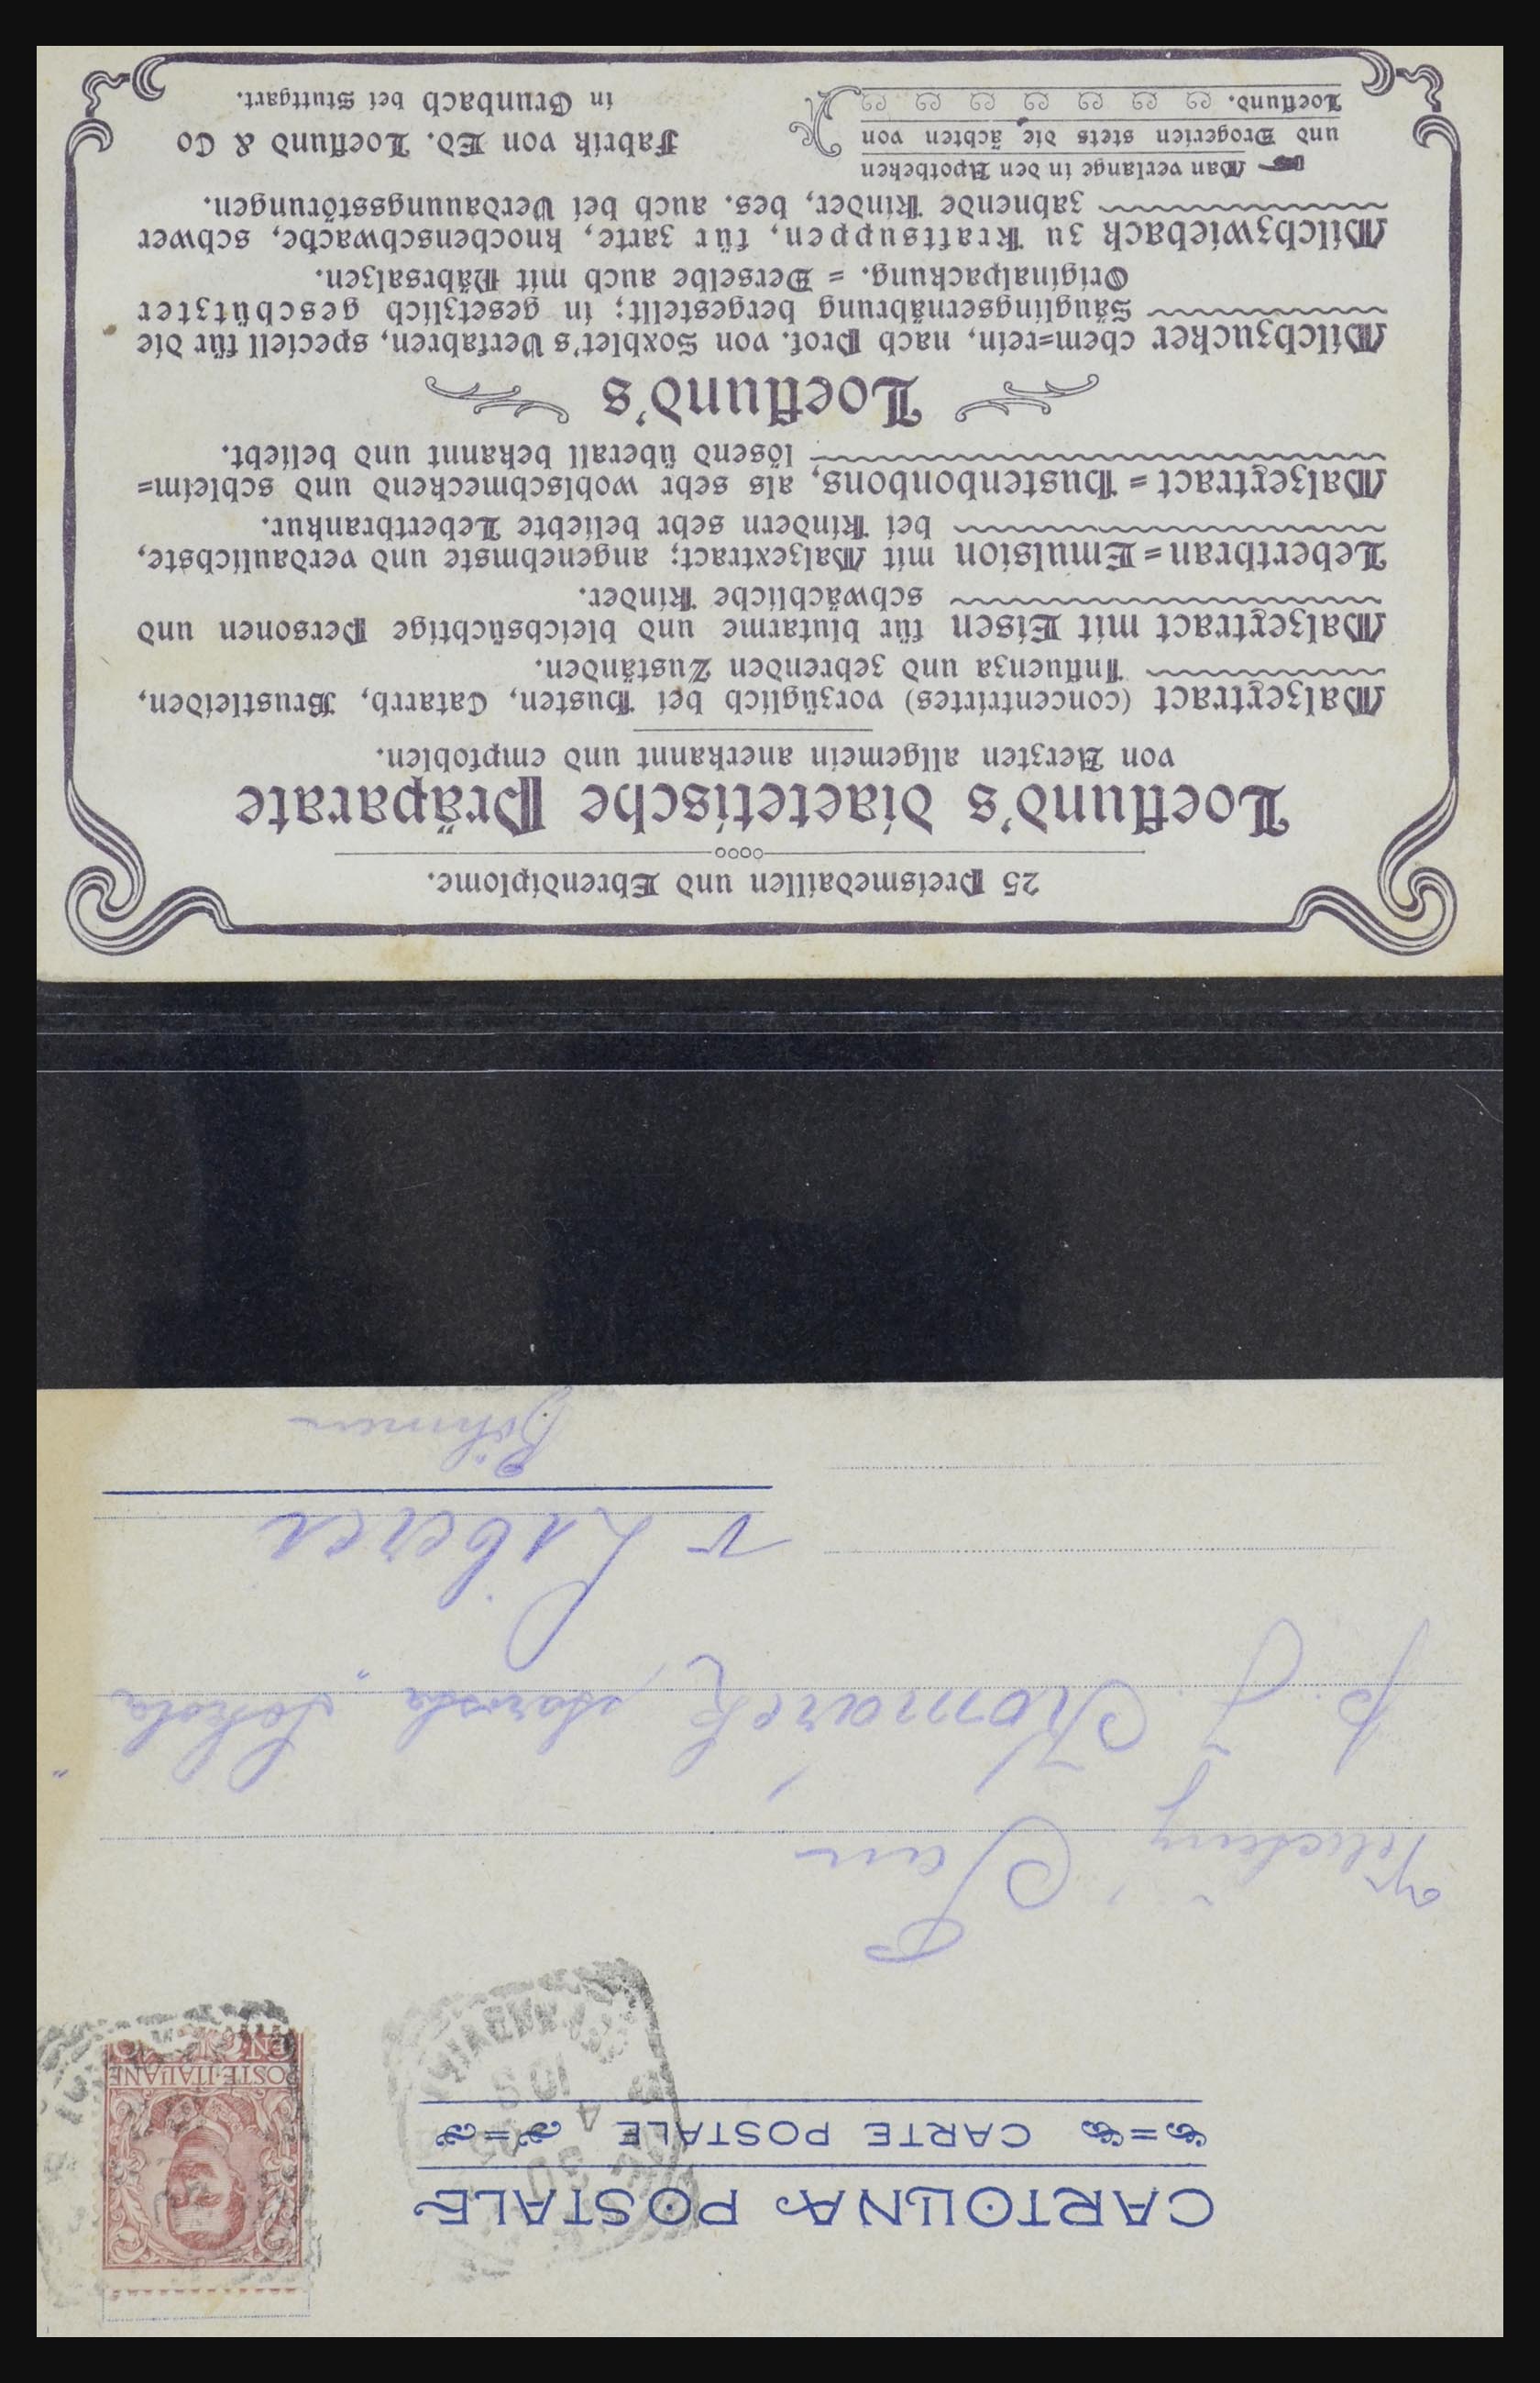 CARTOLINA POSTALE
CARTE POSTALE
POSTE·ITALIANE
Pan
p. J. Komárek, starosta „Sokola“
v Liberci
Böhmen
25 Preismedaillen und Ehrendiplome.
Loeflund's diaetetische Präparate
von Aerzten allgemein anerkannt und empfohlen.
Malzextract (concentrirtes) vorzüglich bei Husten, Catarrh, Brustleiden,
Influenza und zehrenden Zuständen.
Malzextract mit Eisen für blutarme und bleichsüchtige Personen und
schwächliche Kinder.
Leberthran=Emulsion mit Malzextract; angenehmste und verdaulichste,
bei Kindern sehr beliebte Leberthrankur.
Malzextract=Hustenbonbons, als sehr wohlschmeckend und schleim=
lösend überall bekannt und beliebt.
Loeflund's
Milchzucker chem=rein, nach Prof. von Soxhlet's Verfahren, speciell für die
Säuglingsernährung hergestellt; in gesetzlich geschützter
Originalpackung. = Derselbe auch mit Nährsalzen.
Milchzwieback zu Kraftsuppen, für zarte, knochenschwache, schwer
zahnende Kinder, bes. auch bei Verdauungsstörungen.
Man verlange in den Apotheken
und Drogerien stets die ächten von
Loeflund.
Fabrik von Ed. Loeflund & Co
in Grunbach bei Stuttgart.